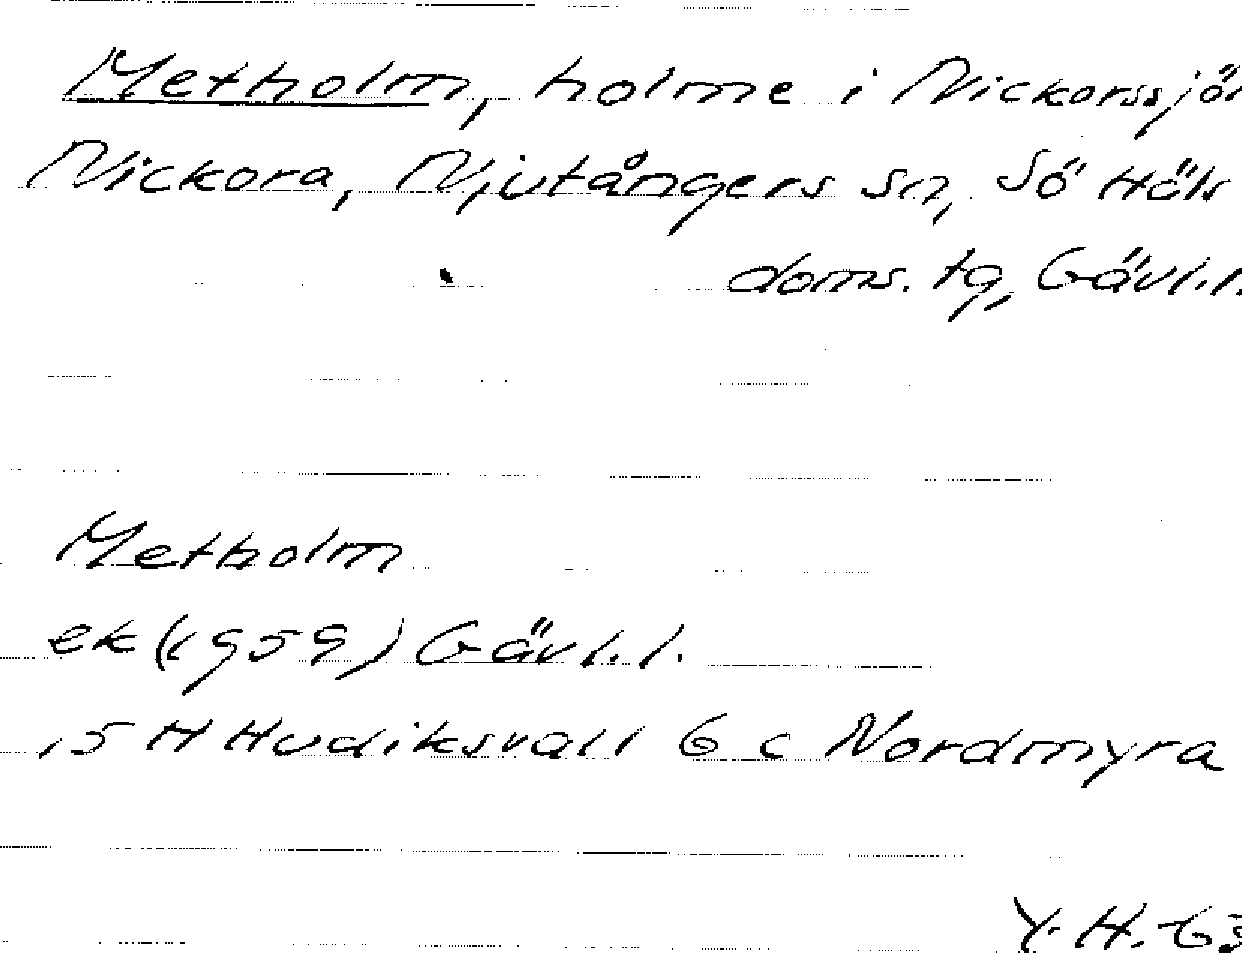 Metholm, holme i Nickorssjön
Nickora, Njutångers sn, Sö Häls
doms. tg, Gävl.l.
Metholm
ek (1959) Gävl.l.
15 H Hudiksvall 6 c Nordmyra
Y. H. 63